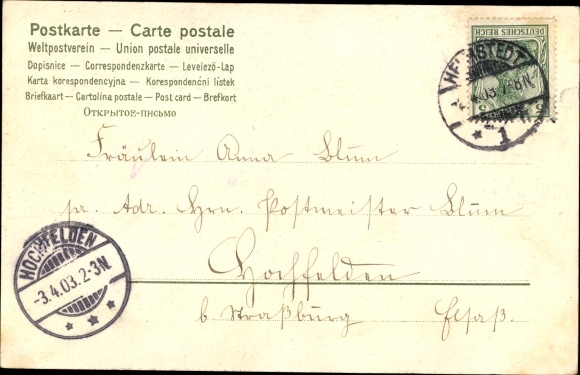 Postkarte — Carte postale
Weltpostverein — Union postale universelle
Dopisnice — Correspondenzkarte — Levelező-Lap
Karta korespondencyjna — Korespondenční lístek
Briefkaart — Cartolina postale — Post card — Brefkort
Открытое-письмо
DEUTSCHES REICH
5 5
HELMSTEDT
.4.03.7-8N.
* 1
Fräulein Anna Blum
pr. Adr. Hrn. Postmeister Blum
Hochfelden
b. Straßburg Elsaß.
HOCHFELDEN
-3.4.03.2-3N.
* * *